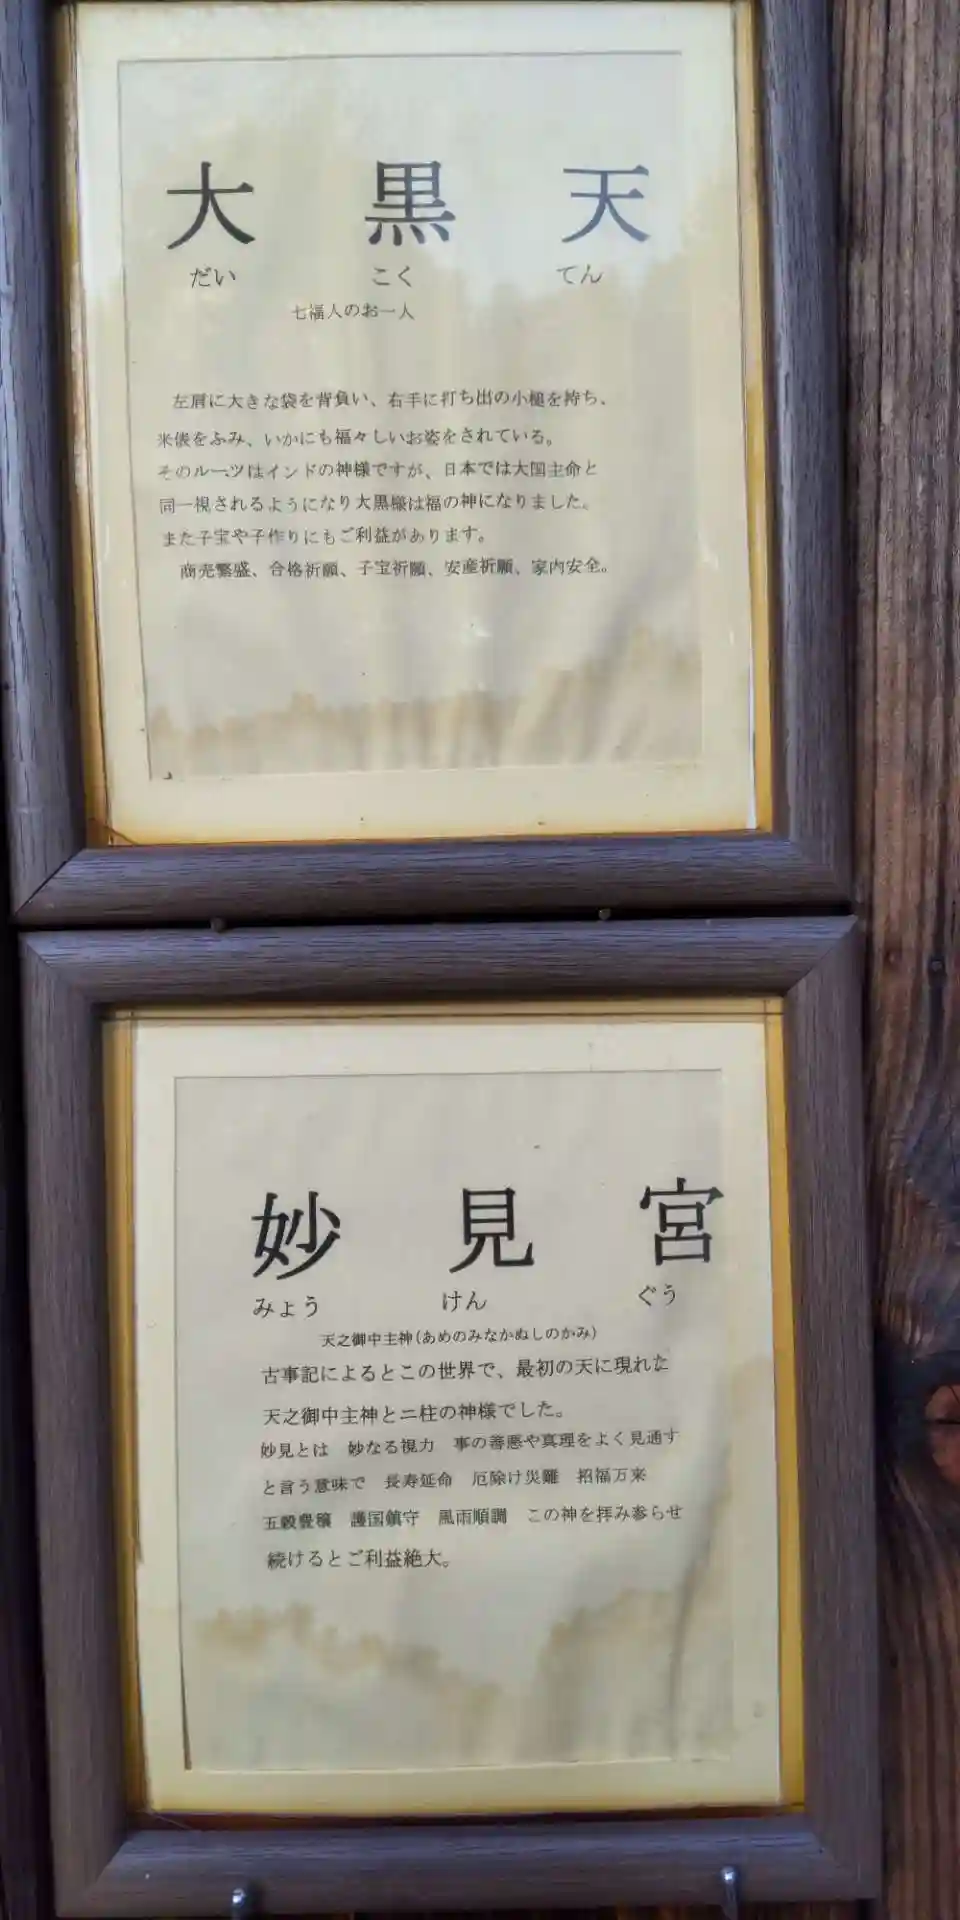 大黒天
だいこくてん
七福人のお一人
左肩に大きな袋を背負い、右手に打ち出の小槌を持ち、
米俵をふみ、いかにも福々しいお姿をされている。
そのルーツはインドの神様ですが、日本では大国主命と
同一視されるようになり大黒様は福の神になりました。
また子宝や子作りにもご利益があります。
商売繁盛、合格祈願、子宝祈願、安産祈願、家内安全。
妙見宮
みょうけんぐう
天之御中主神(あめのみなかぬしのかみ)
古事記によるとこの世界で、最初の天に現れた
天之御中主神と二柱の神様でした。
妙見とは 妙なる視力 事の善悪や真理をよく見通す
と言う意味で 長寿延命 厄除け災難 招福万来
五穀豊穣 護国鎮守 風雨順調 この神を拝み参らせ
続けるとご利益絶大。